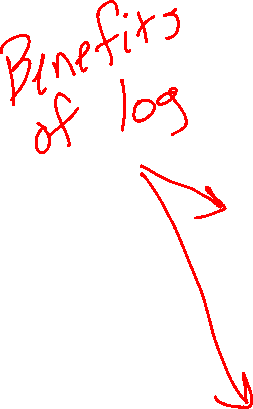 Benefits
of log